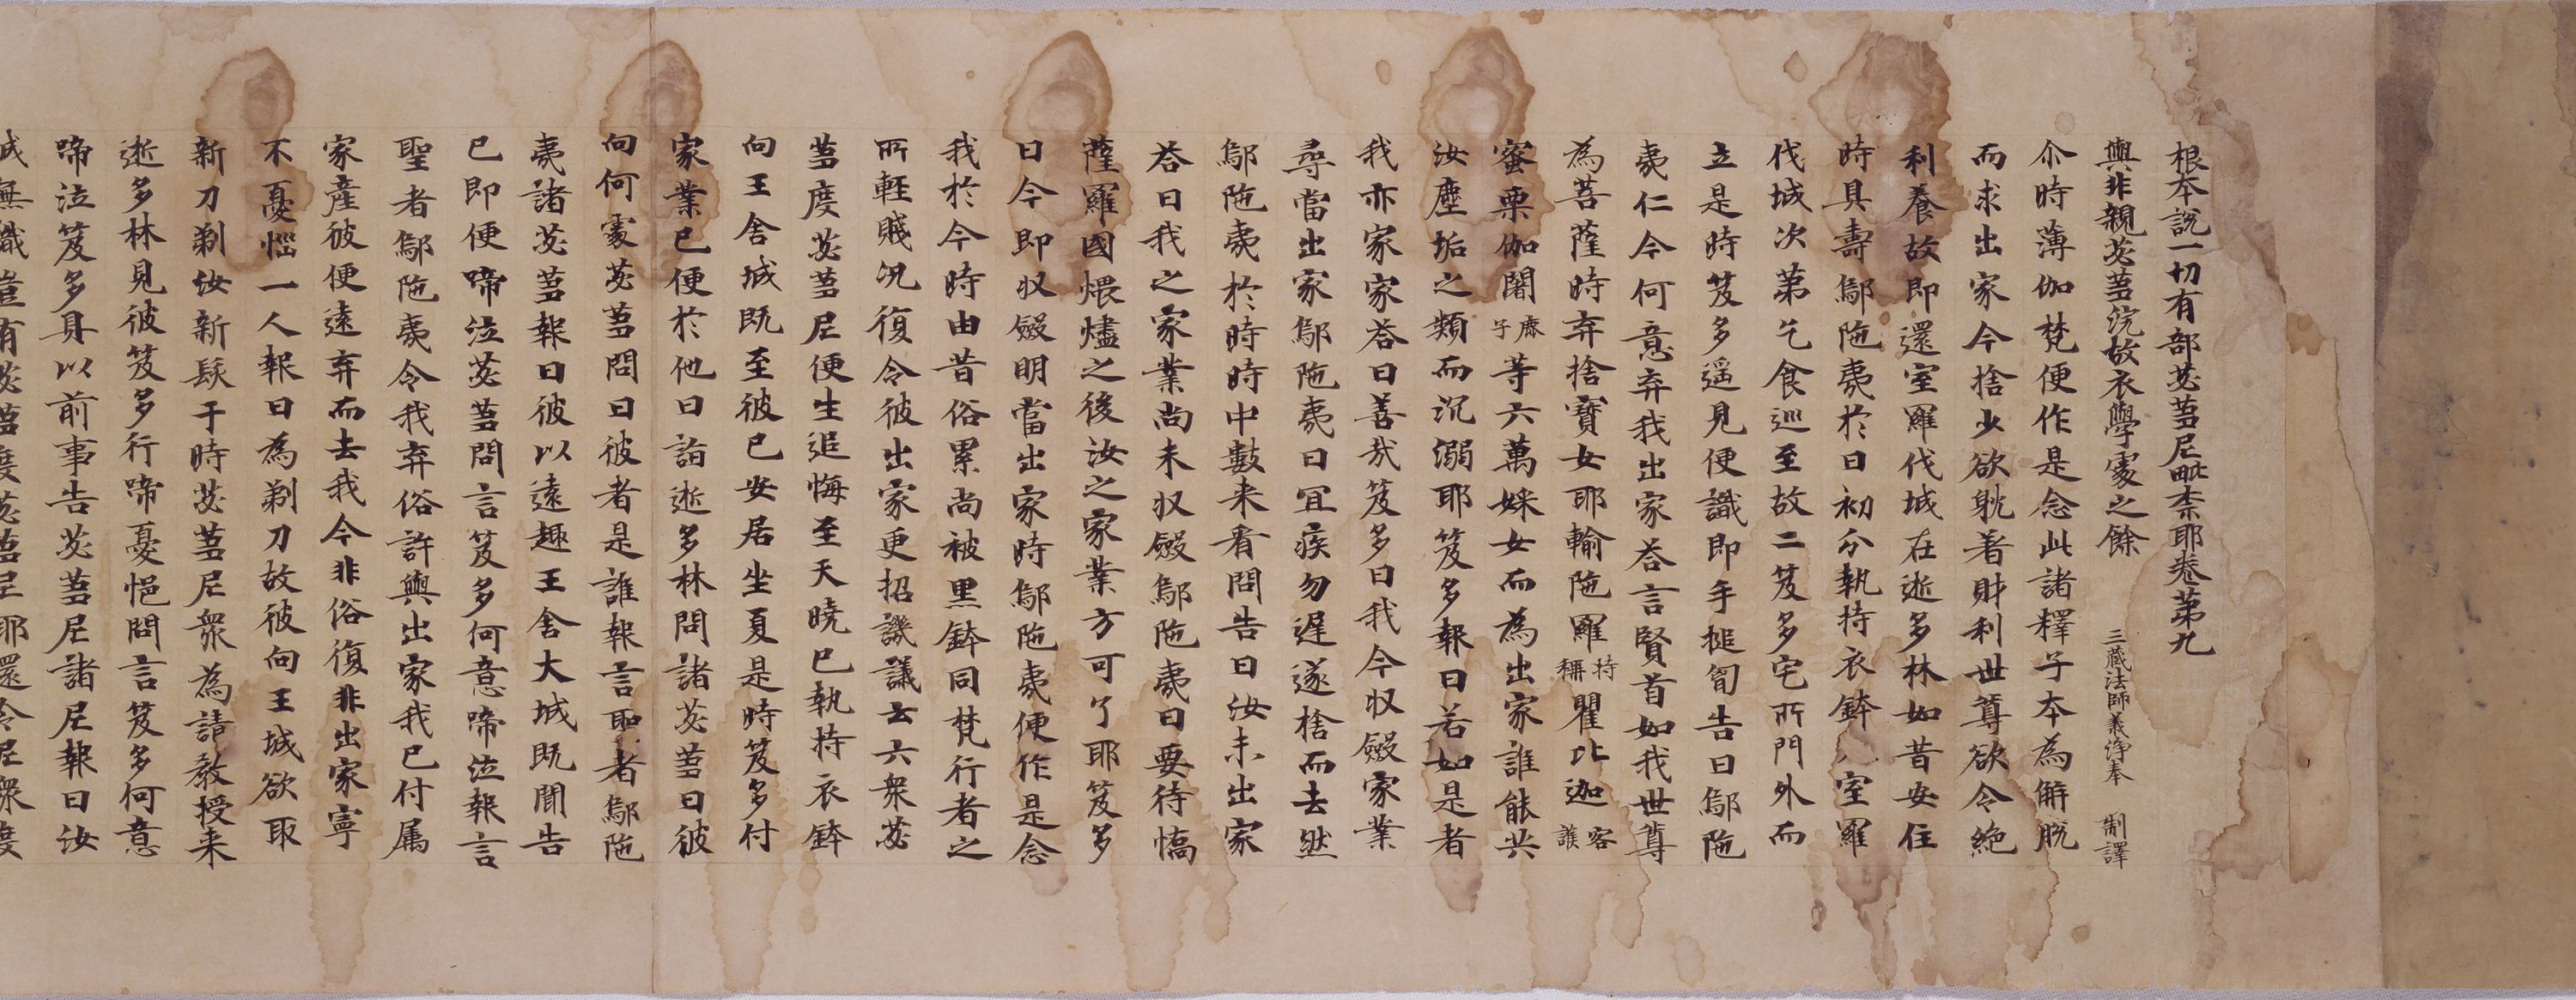 根本說一切有部苾蒭尼毗柰耶卷第九
三藏法師義淨奉 制譯
與非親苾蒭浣故衣學處之餘
尒時薄伽梵便作是念此諸釋子本為解脫
而求出家今捨少欲躭著財利世尊欲令絕
利養故即還室羅伐城在逝多林如昔安住
時具壽鄔陁夷於日初分執持衣鉢入室羅
伐城次第乞食巡至故二笈多宅所門外而
立是時笈多遥見便識即手搥胷告曰鄔陁
夷仁今何意弃我出家荅言賢首如我世尊
為菩薩時弃捨寶女耶輸陁羅持稱瞿比迦容護
蜜栗伽闍鹿子等六萬婇女而為出家誰能共
汝塵垢之類而沉溺耶笈多報曰若如是者
我亦家家荅曰善哉笈多曰我今収斂家業
尋當出家鄔陁夷曰冝疾勿遲遂捨而去然
鄔陁夷於時時中數来看問告曰汝未出家
荅曰我之家業尚未収斂鄔陁夷曰要待憍
薩羅國煨燼之後汝之家業方可了耶笈多
曰今即収斂明當出家時鄔陁夷便作是念
我於今時由昔俗累尚被黑鉢同梵行者之
所輕賤況復令彼出家更招譏議云六衆苾
蒭度苾蒭尼便生追悔至天曉已執持衣鉢
向王舍城既至彼已安居坐夏是時笈多付
家業已便於他日詣逝多林問諸苾蒭曰彼
向何處苾蒭問曰彼者是誰報言聖者鄔陁
夷諸苾蒭報曰彼以遠趣王舍大城既聞告
已即便啼泣苾蒭問言笈多何意啼泣報言
聖者鄔陁夷令我弃俗許與出家我已付属
家產彼便遠弃而去我今非俗復非出家寧
不憂惱一人報曰為剃刀故彼向王城欲取
新刀剃汝新髮于時苾蒭尼衆為請教授来
逝多林見彼笈多行啼憂悒問言笈多何意
啼泣笈多具以前事告苾蒭尼諸尼報曰汝
誠無識豈有苾蒭度苾蒭尼耶還令尼衆度